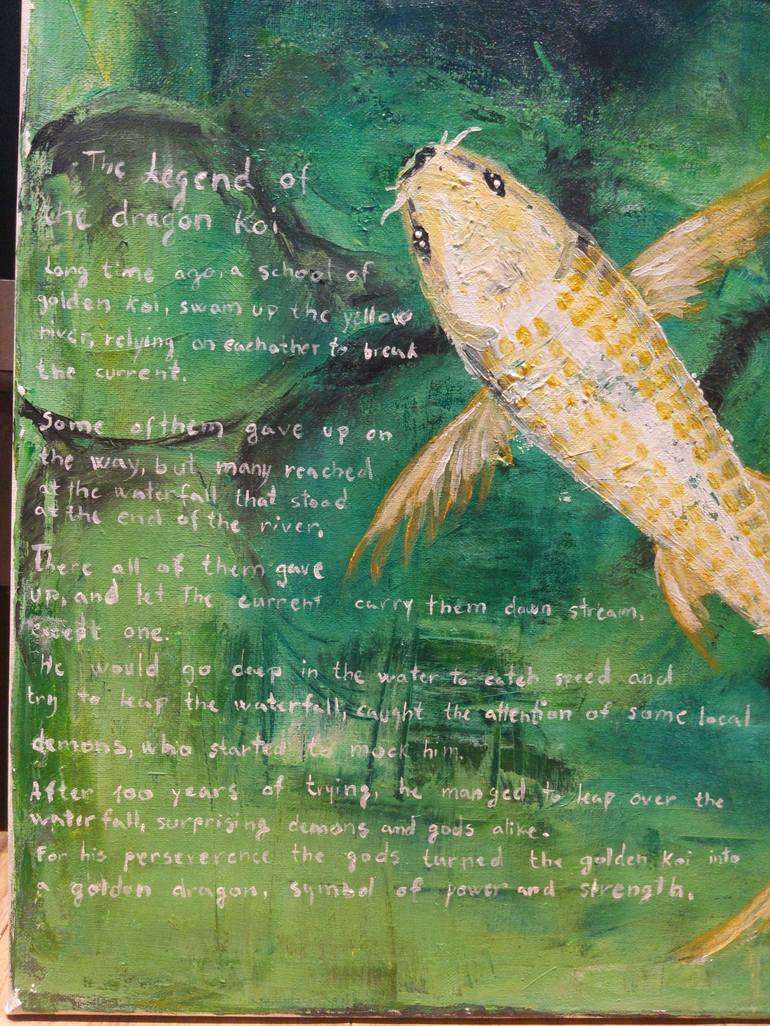 The Legend of
the dragon Koi
Long time ago, a school of
golden Koi, swam up the yellow
river, relying on eachother to break
the current.
Some of them gave up on
the way, but many reached
at the waterfall that stood
at the end of the river.
There all of them gave
up, and let The current carry them down stream,
except one.
He would go deep in the water to catch speed and
try to leap the waterfall, caught the attention of some local
demons, who started to mock him.
After 100 years of trying, he manged to leap over the
waterfall, surprising demons and gods alike.
For his perseverence the gods turned the golden Koi into
a golden dragon, symbol of power and strength.